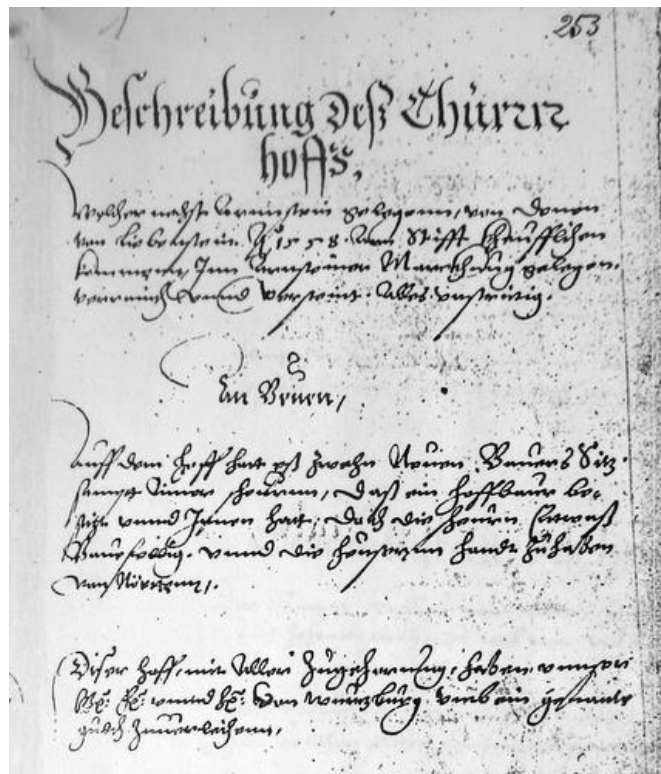 253
Beschreibung deß Thurn
hoffs,
Welcher nechst Arnnstein gelegenn, von denen
von Liebenstein Aº 1558 Ann Stifft Kheufflichen
kommenn, Inn Arnsteiner Marckhung gelegen.
verraindt vnnd versteint. Alles vnstrittig.
An Beuen,
Auff dem Hoff hatt es zwehn Neuen Bauers Sitz
sampt einer scheurnn, daß ein hoffbaur be-
sitzt vnnd Innen hatt, doch die scheurn Etwaß
Baufellig. vnnd die heuser Inn handt zuhaben
von Nötten,
Diser Hoff, mit Aller Zugehörung, haben vnnser
gn: fr: vnnd hr: von Wurtzburg vmb ein genante
gültt zuuerleihenn,